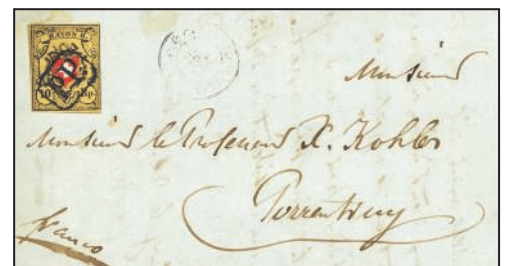 RAYON II.
P.P.
10 Rp.
Monsieur
Monsieur le Professeur X. Kohler
Porrentruy
franco